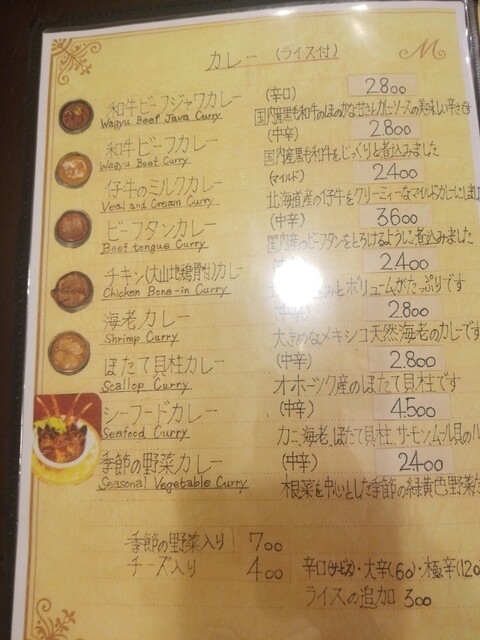 カレー (ライス付)
M
和牛ビーフジャワカレー (辛口) 2.800
Wagyu Beef Java Curry 国内産黒毛和牛のほのかな甘さとカレーソースの美味しい辛さです
和牛ビーフカレー (中辛) 2.800
Wagyu Beef Curry 国内産黒毛和牛をじっくりと煮込みました
仔牛のミルクカレー (マイルド) 2.400
Veal and Cream Curry 北海道産の仔牛をクリーミィーなマイルドカレーにしま
ビーフタンカレー (中辛) 3600
Beef tongue Curry 国内産のビーフタンをとろけるように煮込みました
チキン(大山地鶏骨付)カレー 2.400
Chicken Bone-in Curry みとボリュームがたっぷりです
海老カレー (中辛) 2.800
Shrimp Curry 大きめなメキシコ天然海老のカレーです
ほたて貝柱カレー (中辛) 2.800
Scallop Curry オホーツク産のほたて貝柱です
シーフードカレー (中辛) 4.500
Seafood Curry カニ、海老、ほたて貝柱、サーモン、ムール貝の
季節の野菜カレー (中辛) 2.400
Seasonal Vegetable Curry 根菜を中心とした季節の緑黄色野菜た
季節の野菜入り 700
チーズ入り 400 辛口(サービス)・大辛(60)・極辛(120
ライスの追加 300